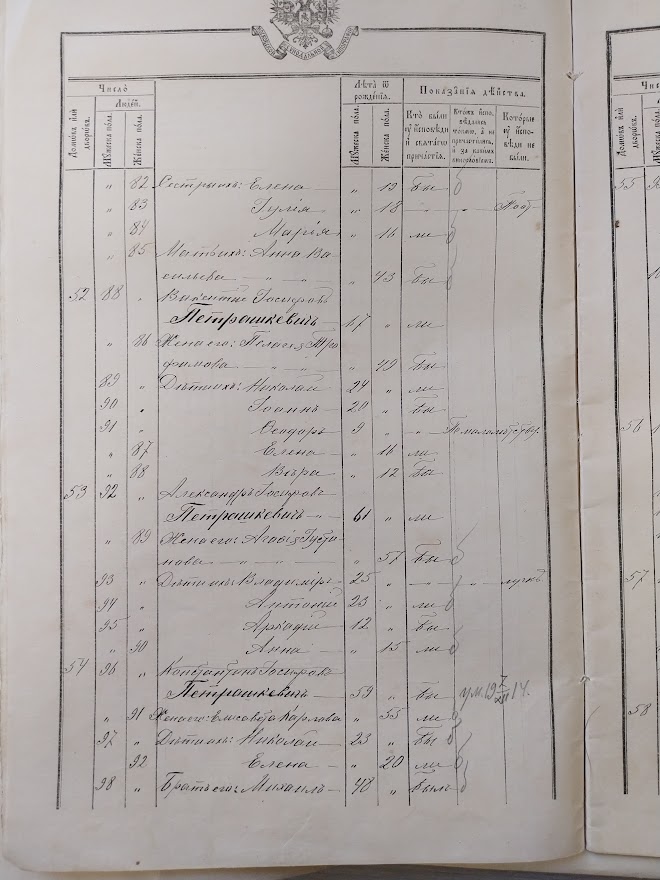 Число
Людей.
Лѣта ѿ рожденія.
Показанія дѣйства.
Домовъ или дворовъ.
Мужеска пола.
Женска пола.
Мужеска пола.
Женска пола.
Кто были у исповѣди и святаго причастія.
Которые у исповѣди не были.
„ 82 Сестры ихъ: Елена — „ 19 Бы
„ 83 Гулія „ 18 — —
„ 84 Марья „ 16 ли
„ 85 Мать ихъ: Анна Ва
сильева — „ — „ „ 43 Бы
52 88 „ Викентій Іосифовъ
Петрашкевичъ — 67 „ ли
„ 86 Жена его: Пелагія Тро
фимова — „ — „ „ 49 Бы
89 „ Дѣти ихъ: Николай 24 „ ли
90 „ Іоаннъ — 20 „ Бы
91 „ Ѳеодоръ 9 „ — „ — По малолѣтству.
„ 87 Елена — „ 16 ли
„ 88 Вѣра — „ 12 Бы
53 92 „ Александръ Іосифовъ
Петрашкевичъ — „ — 61 „ ли
„ 89 Жена его: Агаѳія Густа
нова — „ — „ „ 57 Бы
93 „ Дѣти ихъ: Владиміръ 25 „ — „ —
94 „ Антоній 23 „ ли
95 „ Аркадій 12 „ Бы
„ 90 Анна — „ 15 ли
54 96 „ Константинъ Іосифовъ
Петрашкевичъ — 59 „ Бы ум. 19 7/XII 14.
„ 91 Жена его: Елисавета Карлова „ 55 ли
97 „ Дѣти ихъ: Николай 23 „ Бы
„ 92 Елена „ 20 ли
98 „ Братъ его: Михаилъ — 48 „ Были
55
56
57
58